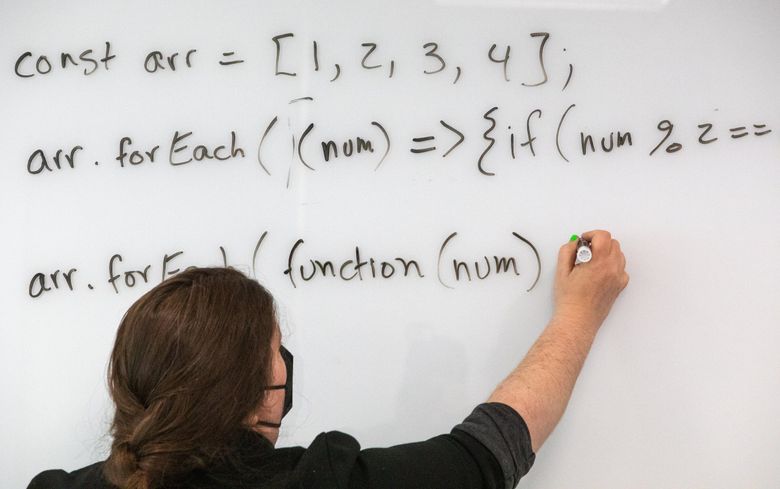 const arr = [1, 2, 3, 4];
arr.forEach((num) => {if (num % 2 ==
arr. ( function (num)